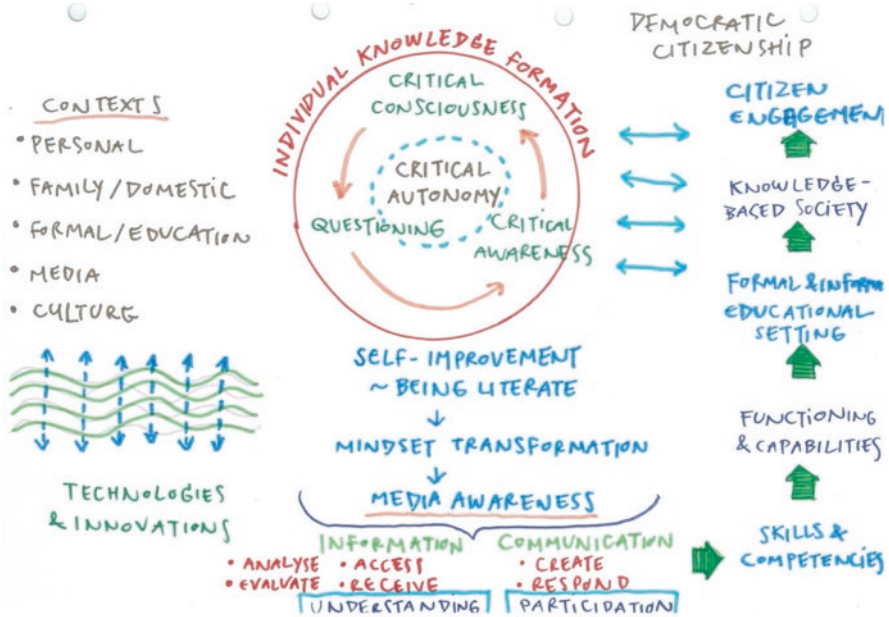 CONTEXTS
• PERSONAL
• FAMILY/DOMESTIC
• FORMAL/EDUCATION
• MEDIA
• CULTURE
TECHNOLOGIES
& INNOVATIONS
INDIVIDUAL KNOWLEDGE FORMATION
CRITICAL
CONSCIOUSNESS
CRITICAL
AUTONOMY
QUESTIONING
CRITICAL
AWARENESS
SELF-IMPROVEMENT
~ BEING LITERATE
MINDSET TRANSFORMATION
MEDIA AWARENESS
INFORMATION
• ANALYSE • ACCESS
• EVALUATE • RECEIVE
UNDERSTANDING
COMMUNICATION
• CREATE
• RESPOND
PARTICIDATION
DEMOCRATIC
CITIZENSHIP
CITIZEN
ENGAGEMENT
KNOWLEDGE-
BASED SOCIETY
FORMAL & INFORM
EDUCATIONAL
SETTING
FUNCTIONING
& CAPABILITIES
SKILLS &
COMPETENCIES